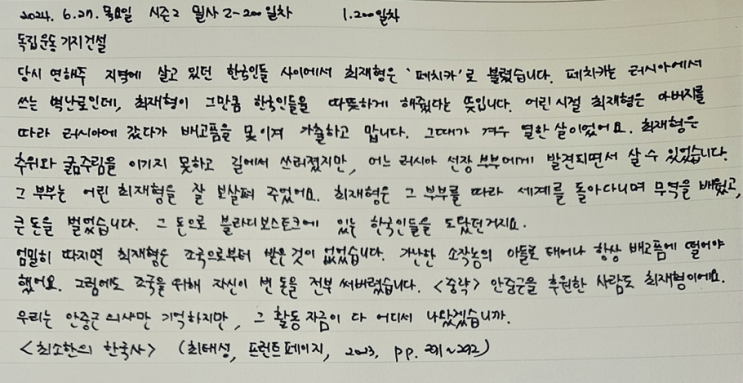 2024. 6.27. 목요일 시즌2 필사 2-200일차 1,200일차
독립운동 기지 건설
당시 연해주 지역에 살고 있던 한국인들 사이에서 최재형은 '페치카'로 불렸습니다. 페치카는 러시아에서
쓰는 벽난로인데, 최재형이 그만큼 한국인들을 따뜻하게 해줬다는 뜻입니다. 어린 시절 최재형은 아버지를
따라 러시아에 갔다가 배고픔을 못 이겨 가출하고 맙니다. 그때가 겨우 열한 살이었어요. 최재형은
추위와 굶주림을 이기지 못하고 길에서 쓰러졌지만, 어느 러시아 선장 부부에게 발견되면서 살 수 있었습니다.
그 부부는 어린 최재형을 잘 보살펴 주었어요. 최재형은 그 부부를 따라 세계를 돌아다니며 무역을 배웠고,
큰 돈을 벌었습니다. 그 돈으로 블라디보스토크에 있는 한국인들을 도왔던 거지요.
엄밀히 따지면 최재형은 조국으로부터 받은 것이 없었습니다. 가난한 소작농의 아들로 태어나 항상 배고픔에 떨어야
했어요. 그럼에도 조국을 위해 자신이 번 돈을 전부 써버렸습니다. <중략> 안중근을 후원한 사람도 최재형이에요.
우리는 안중근 의사만 기억하지만, 그 활동 자금이 다 어디서 나왔겠습니까.
<최소한의 한국사> (최태성, 프런트페이지, 2023, pp. 291~292)